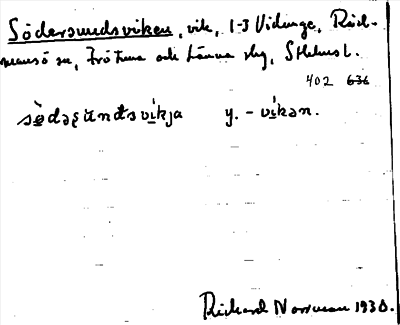 Södersundsviken, vik, 1-3 Vidinge, Räd-
mansö sn, Frötuna och Länna skg, Sthlms l.
402 636
sö̀dəʂŭnd̄svi̇kja y. – vi̇kən.
Richard Norrman 1930.